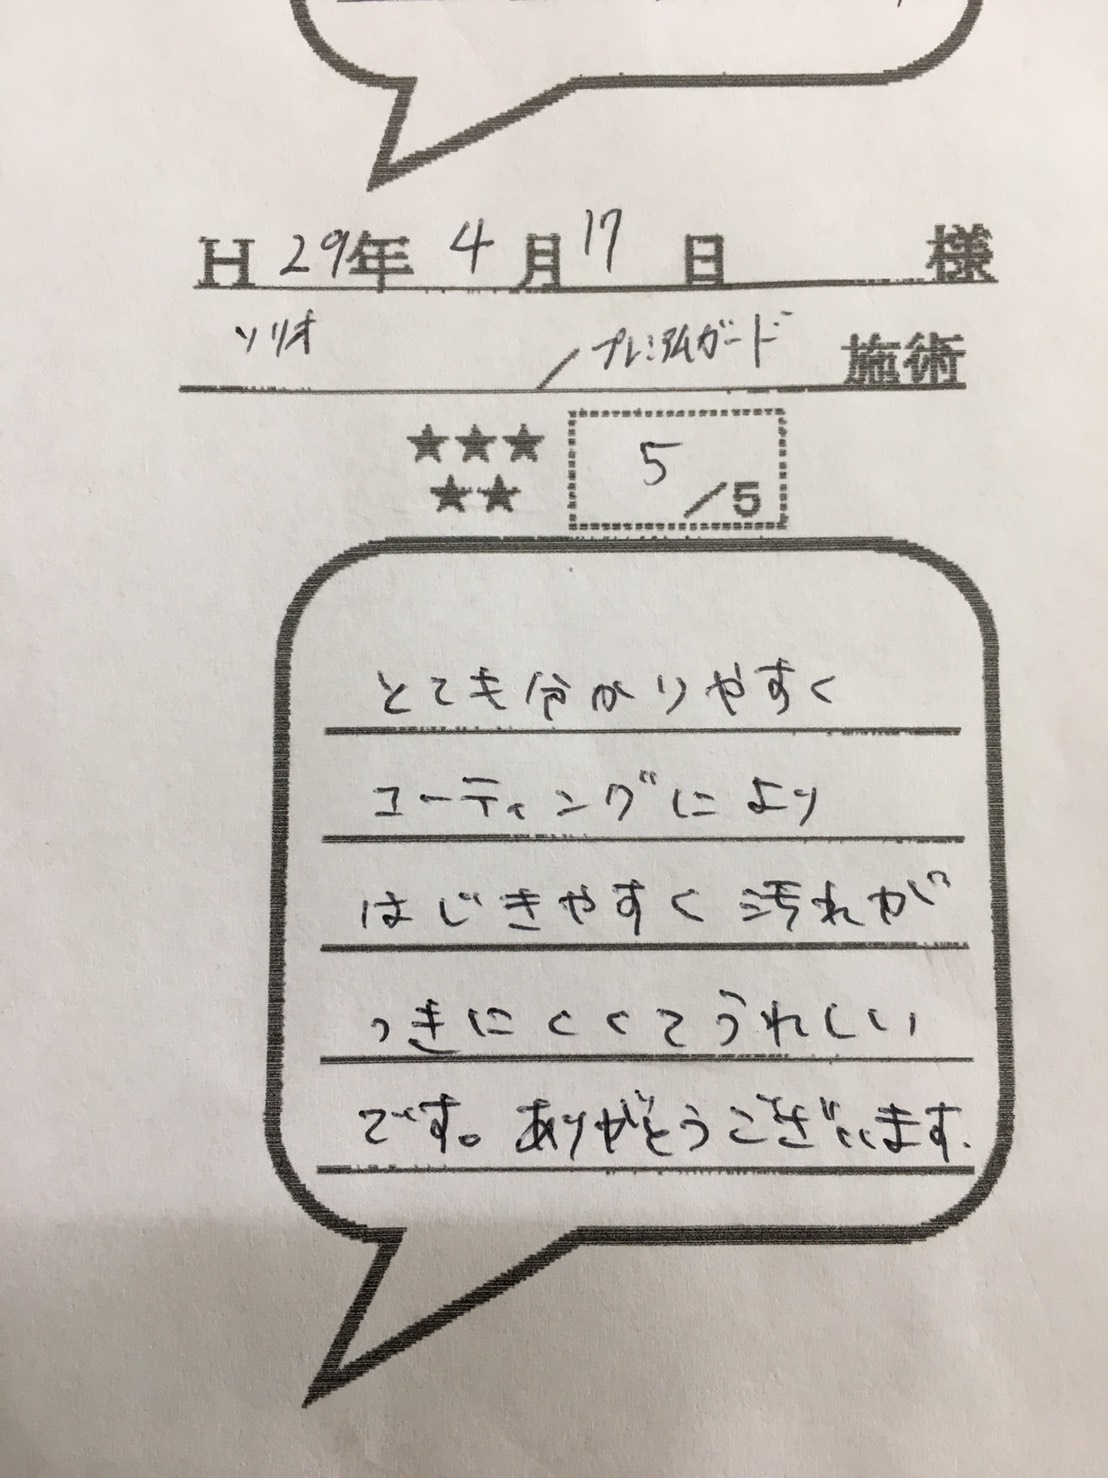 H 29年 4月 17日 様
ソリオ ／プレミアムガード 施術
★★★
★★
5／5
とても分かりやすく
コーティングにより
はじきやすく汚れが
つきにくくてうれしい
です。ありがとうございます.